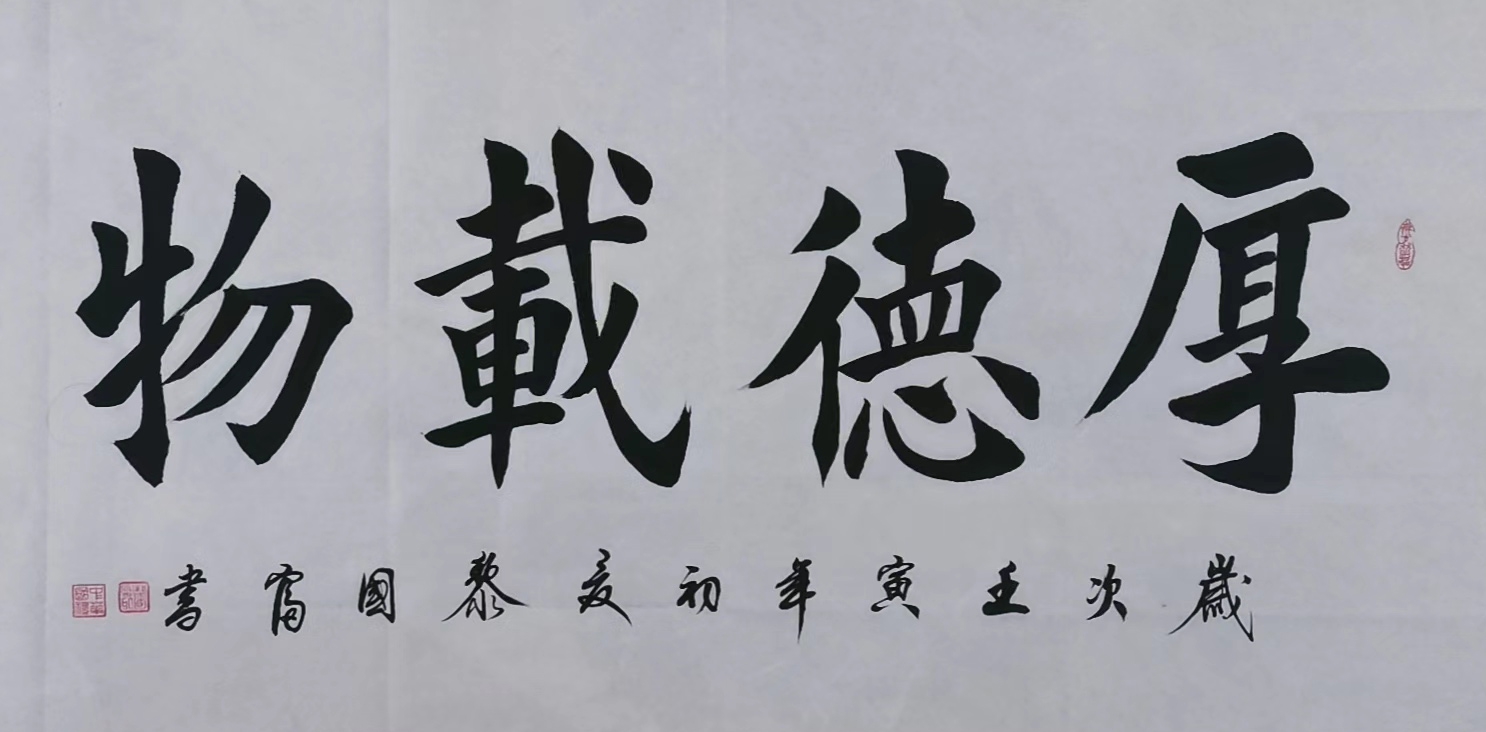 厚德載物
歲次壬寅年初夏黎國富書